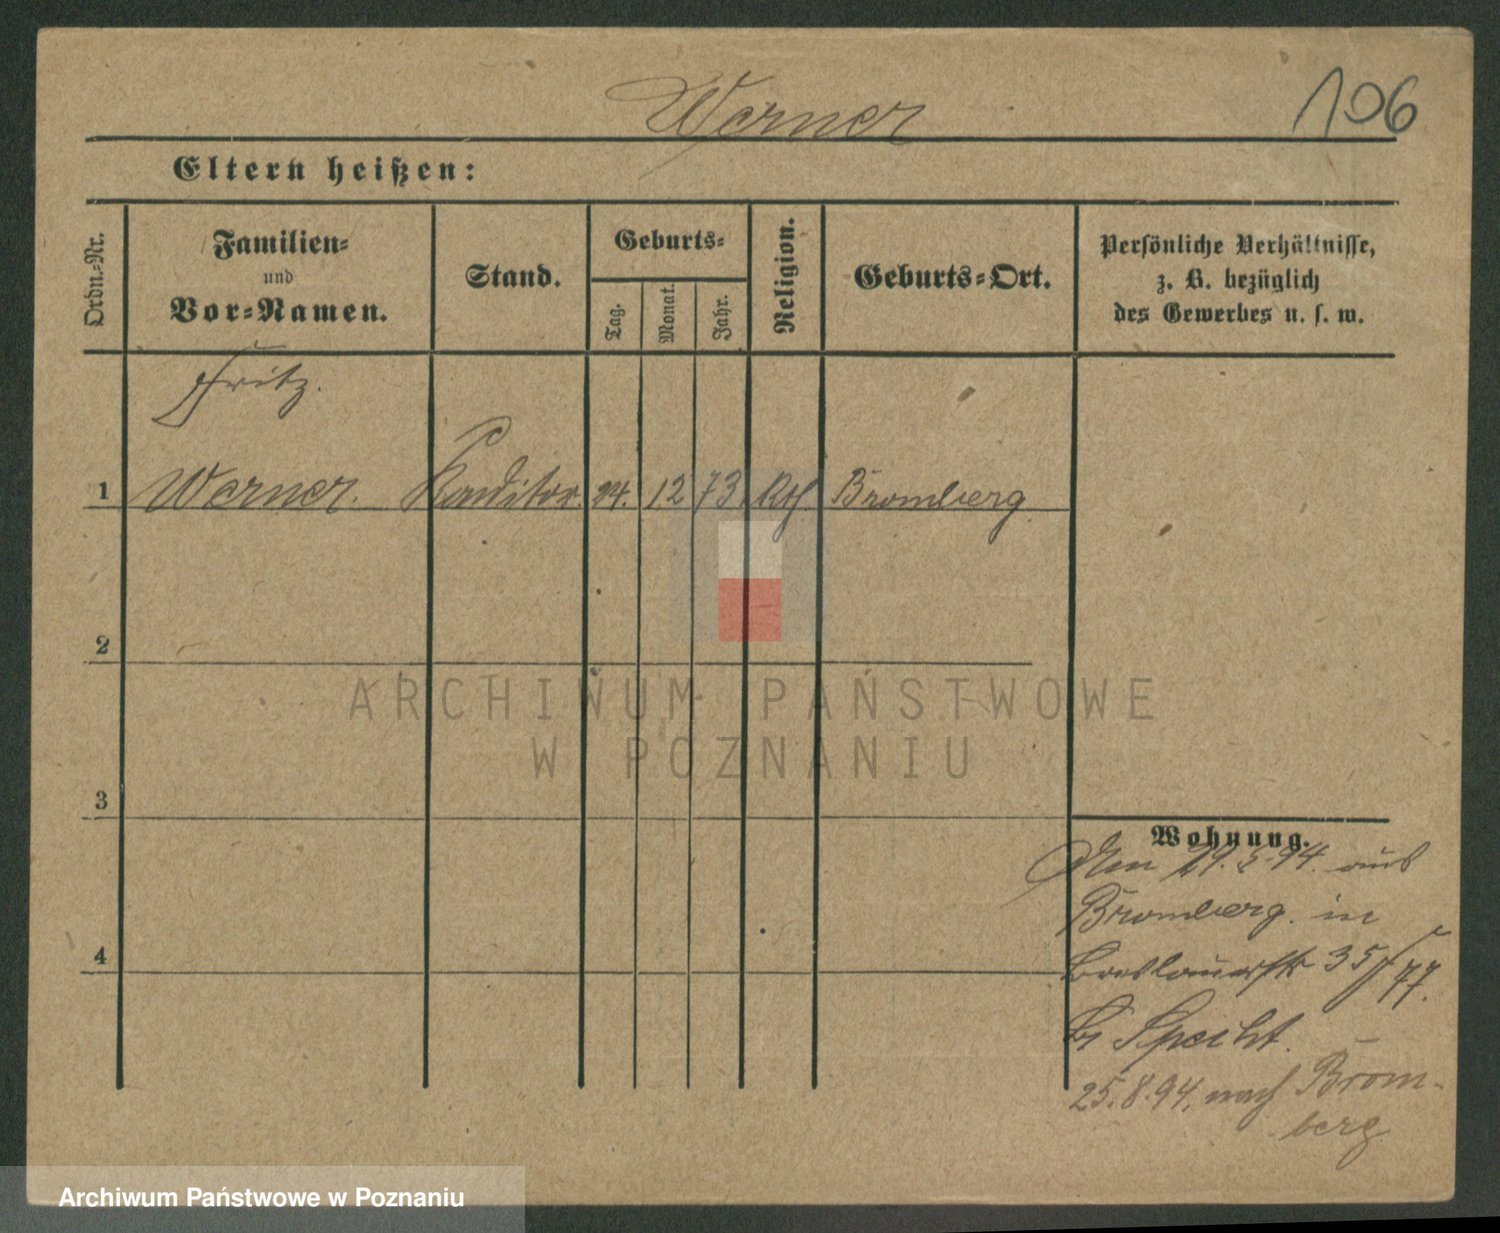 Werner
106
Eltern heißen:
Ordn.-Nr.
Familien-
und
Vor-Namen.
Stand.
Geburts-
Tag.
Monat.
Jahr.
Religion.
Geburts-Ort.
Persönliche Verhältnisse,
z. B. bezüglich
des Gewerbes u. s. w.
Fritz.
1 Werner. Konditor. 24. 12 73. Kth. Bromberg
2
3
4
ARCHIWUM PAŃSTWOWE
W POZNANIU
Wohnung.
29. 5. 94. aus
Bromberg. in
Breslauerstr 35/
77.
Specht.
25. 8. 94. nach Brom-
berg
Archiwum Państwowe w Poznaniu